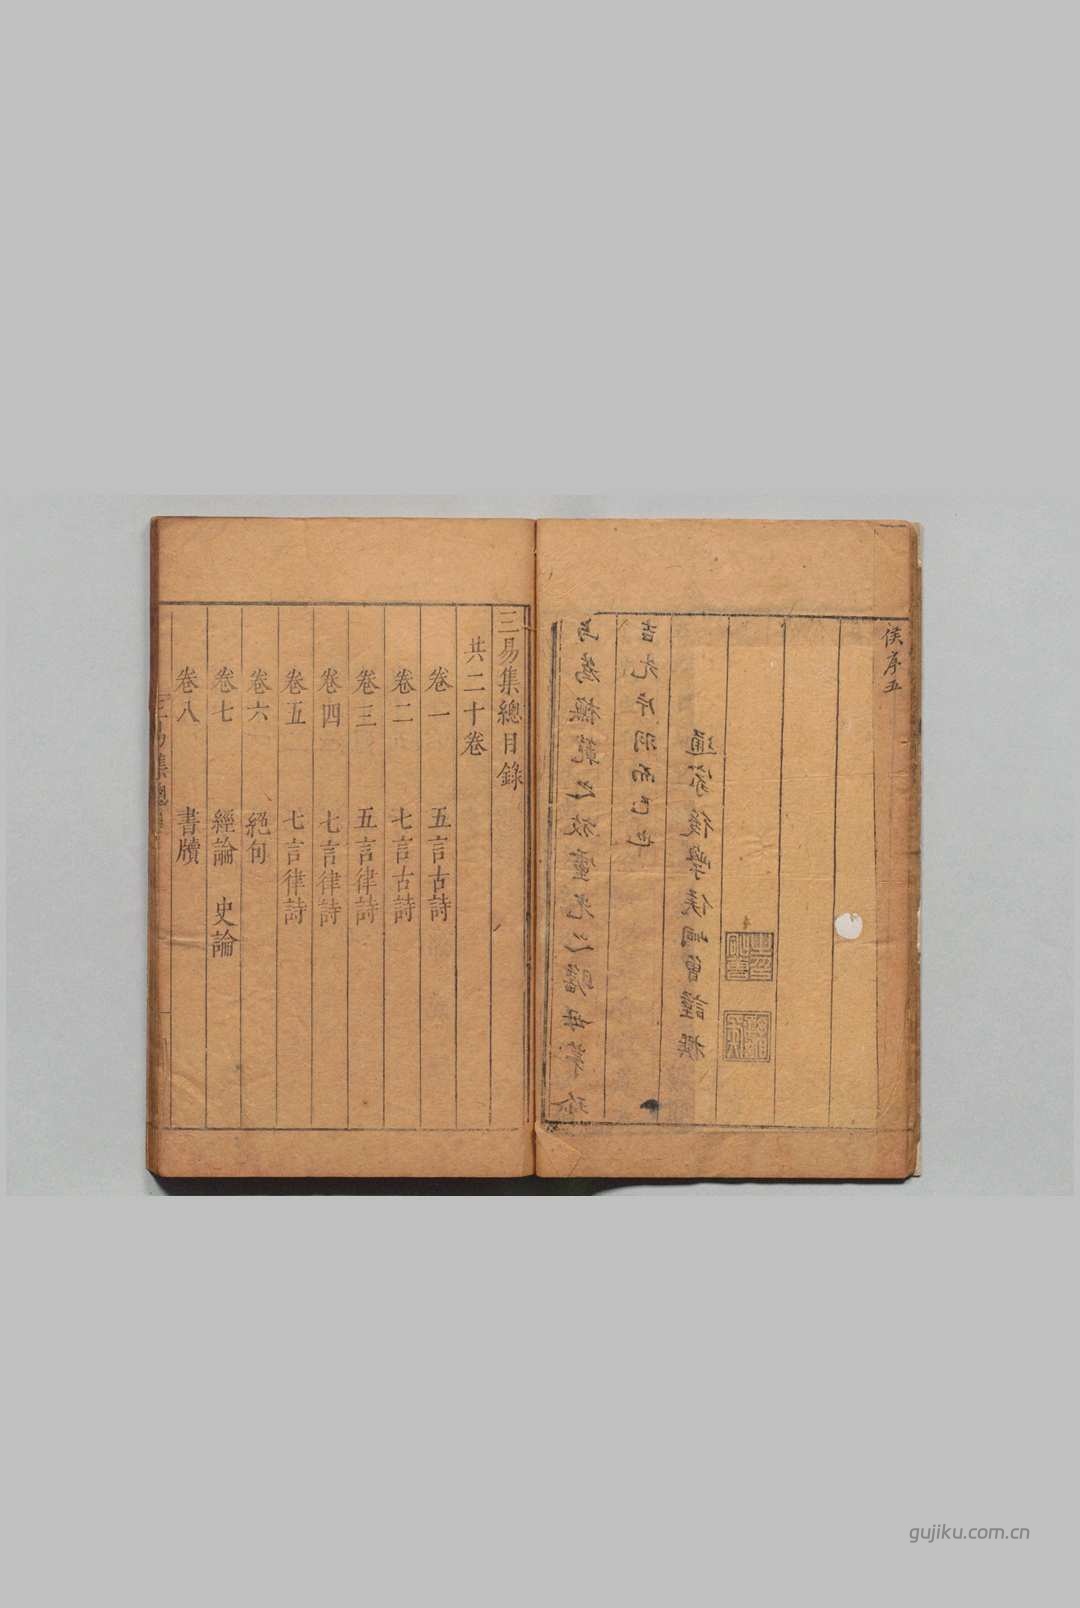 侯序五
吉光片羽而已也
通家後學侯峒曾謹撰
三易集總目錄
共二十卷
卷一 五言古詩
卷二 七言古詩
卷三 五言律詩
卷四 七言律詩
卷五 七言律詩
卷六 絕句
卷七 經論 史論
卷八 書牘
三易集總
gujiku.com.cn